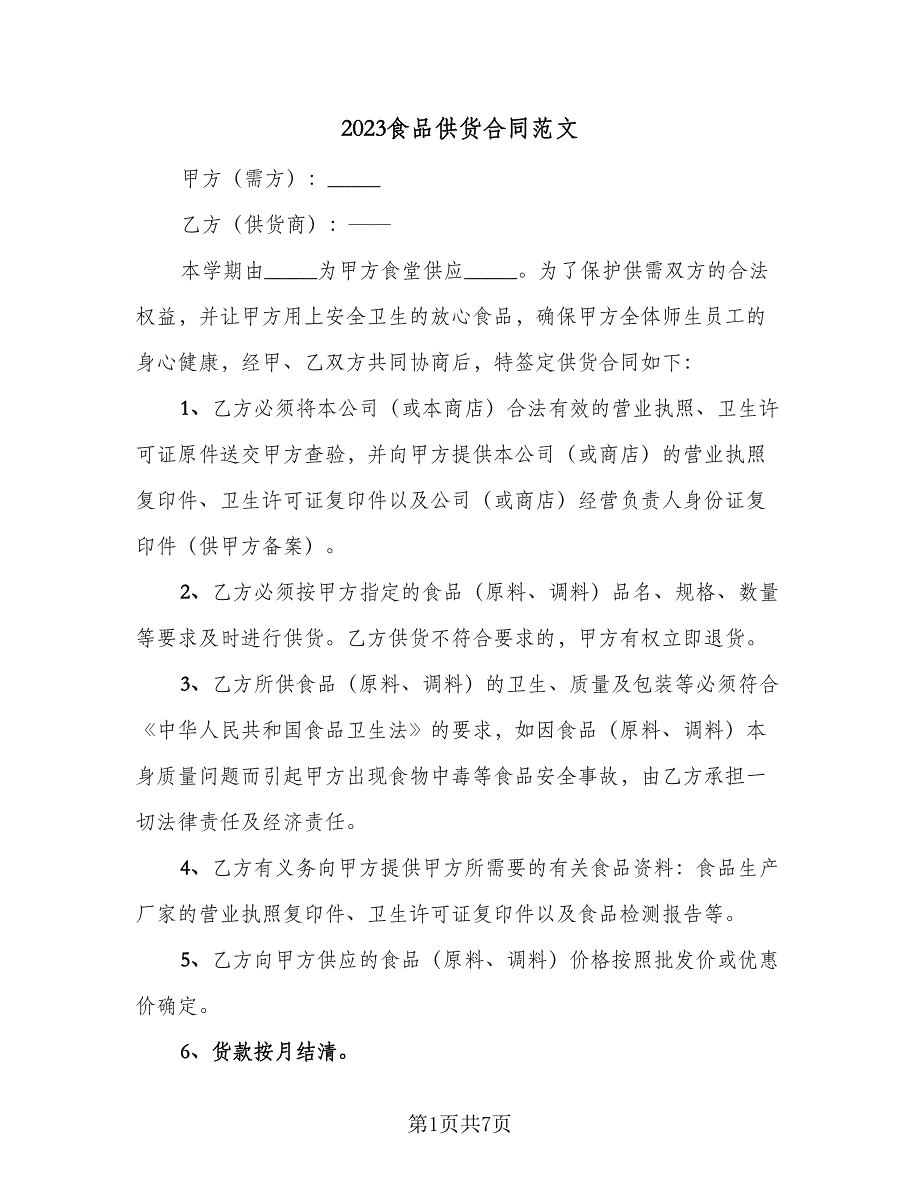 2023食品供货合同范文
甲方（需方）：_____
乙方（供货商）：——
本学期由_____为甲方食堂供应_____。为了保护供需双方的合法
权益，并让甲方用上安全卫生的放心食品，确保甲方全体师生员工的
身心健康，经甲、乙双方共同协商后，特签定供货合同如下：
1、乙方必须将本公司（或本商店）合法有效的营业执照、卫生许
可证原件送交甲方查验，并向甲方提供本公司（或商店）的营业执照
复印件、卫生许可证复印件以及公司（或商店）经营负责人身份证复
印件（供甲方备案）。
2、乙方必须按甲方指定的食品（原料、调料）品名、规格、数量
等要求及时进行供货。乙方供货不符合要求的，甲方有权立即退货。
3、乙方所供食品（原料、调料）的卫生、质量及包装等必须符合
《中华人民共和国食品卫生法》的要求，如因食品（原料、调料）本
身质量问题而引起甲方出现食物中毒等食品安全事故，由乙方承担一
切法律责任及经济责任。
4、乙方有义务向甲方提供甲方所需要的有关食品资料：食品生产
厂家的营业执照复印件、卫生许可证复印件以及食品检测报告等。
5、乙方向甲方供应的食品（原料、调料）价格按照批发价或优惠
价确定。
6、货款按月结清。
第1页共7页